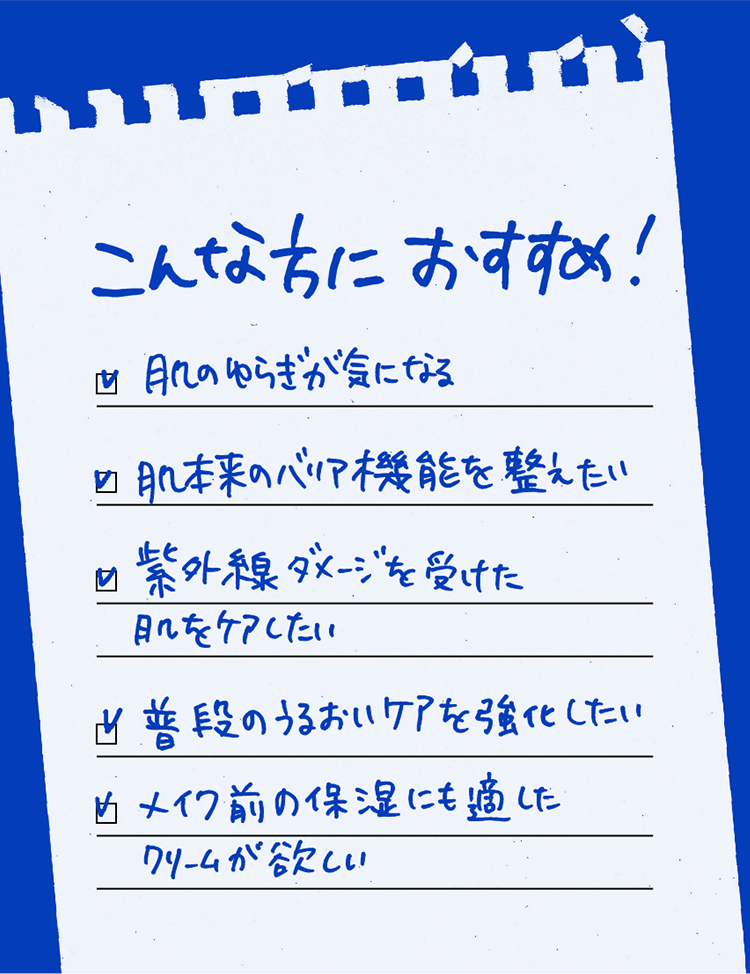 こんな方に おすすめ!
肌のゆらぎが気になる
肌本来のバリア機能を整えたい
紫外線ダメージを受けた
肌をケアしたい
普段のうるおいケアを強化したい
メイク前の保湿にも適した
クリームが欲しい